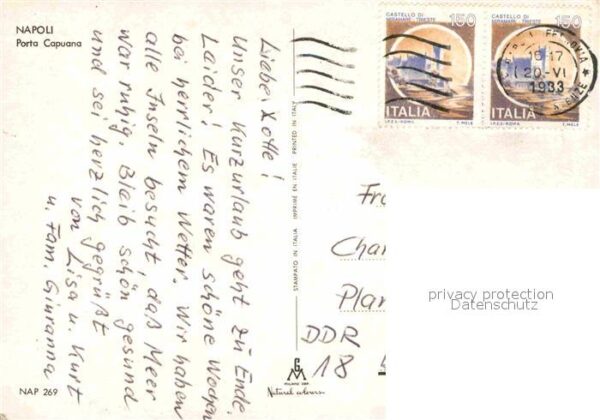 NAPOLI
Porta Capuana
Liebe Lotte!
Unser Kurzurlaub geht zu Ende.
Leider! Es waren schöne Wochen
bei herrlichem Wetter. Wir haben
alle Inseln besucht, das Meer
war ruhig. Bleib schön gesund
und sei herzlich gegrüßt
von Lisa u. Kurt
u. Fam. Giuranna
NAP 269
STAMPATO IN ITALIA IMPRIMÉ EN ITALIE PRINTED IN ITALY
MILANO
Natural colours
CASTELLO DI
MIRAMARE - TRIESTE
150
ITALIA
I.P.Z.S.-ROMA E. MELE
CASTELLO DI
MIRAMARE - TRIESTE
150
ITALIA
I.P.Z.S.-ROMA E. MELE
FERROVIA
16-17
20.-VI
1983
Fra
Char
Plan
DDR
18
privacy protection
Datenschutz